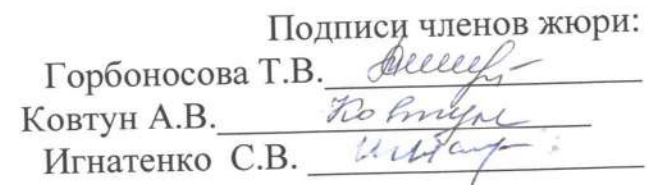 Подписи членов жюри:
Горбоносова Т.В.
Ковтун А.В. Ковтун
Игнатенко С.В.